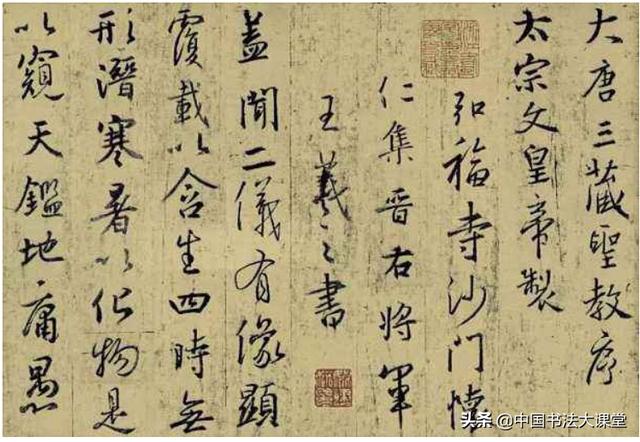 大唐三藏聖教序
太宗文皇帝製
弘福寺沙門懷
仁集晋右將軍
王羲之書
蓋聞二儀有像顯
覆載以含生四時無
形潛寒暑以化物是
以窺天鑑地庸愚
头条 @中国书法大课堂